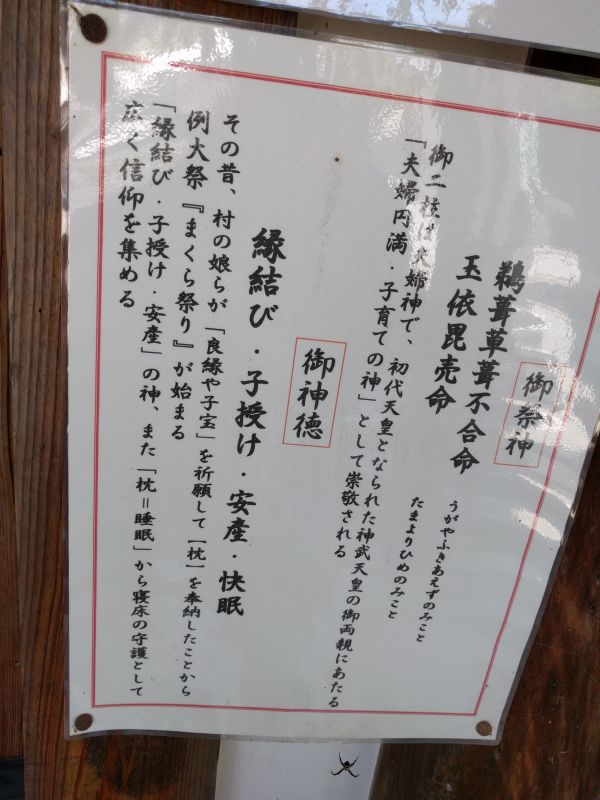 御祭神
鵜葺草葺不合命
うがやふきあえずのみこと
玉依毘売命
たまよりひめのみこと
御二柱は夫婦神で、初代天皇となられた神武天皇の御両親にあたる
「夫婦円満・子育ての神」として崇敬される
御神徳
縁結び・子授け・安産・快眠
その昔、村の娘らが「良縁や子宝」を祈願して［枕］を奉納したことから
例大祭『まくら祭り』が始まる
「縁結び・子授け・安産」の神、また「枕＝睡眠」から寝床の守護として
広く信仰を集める